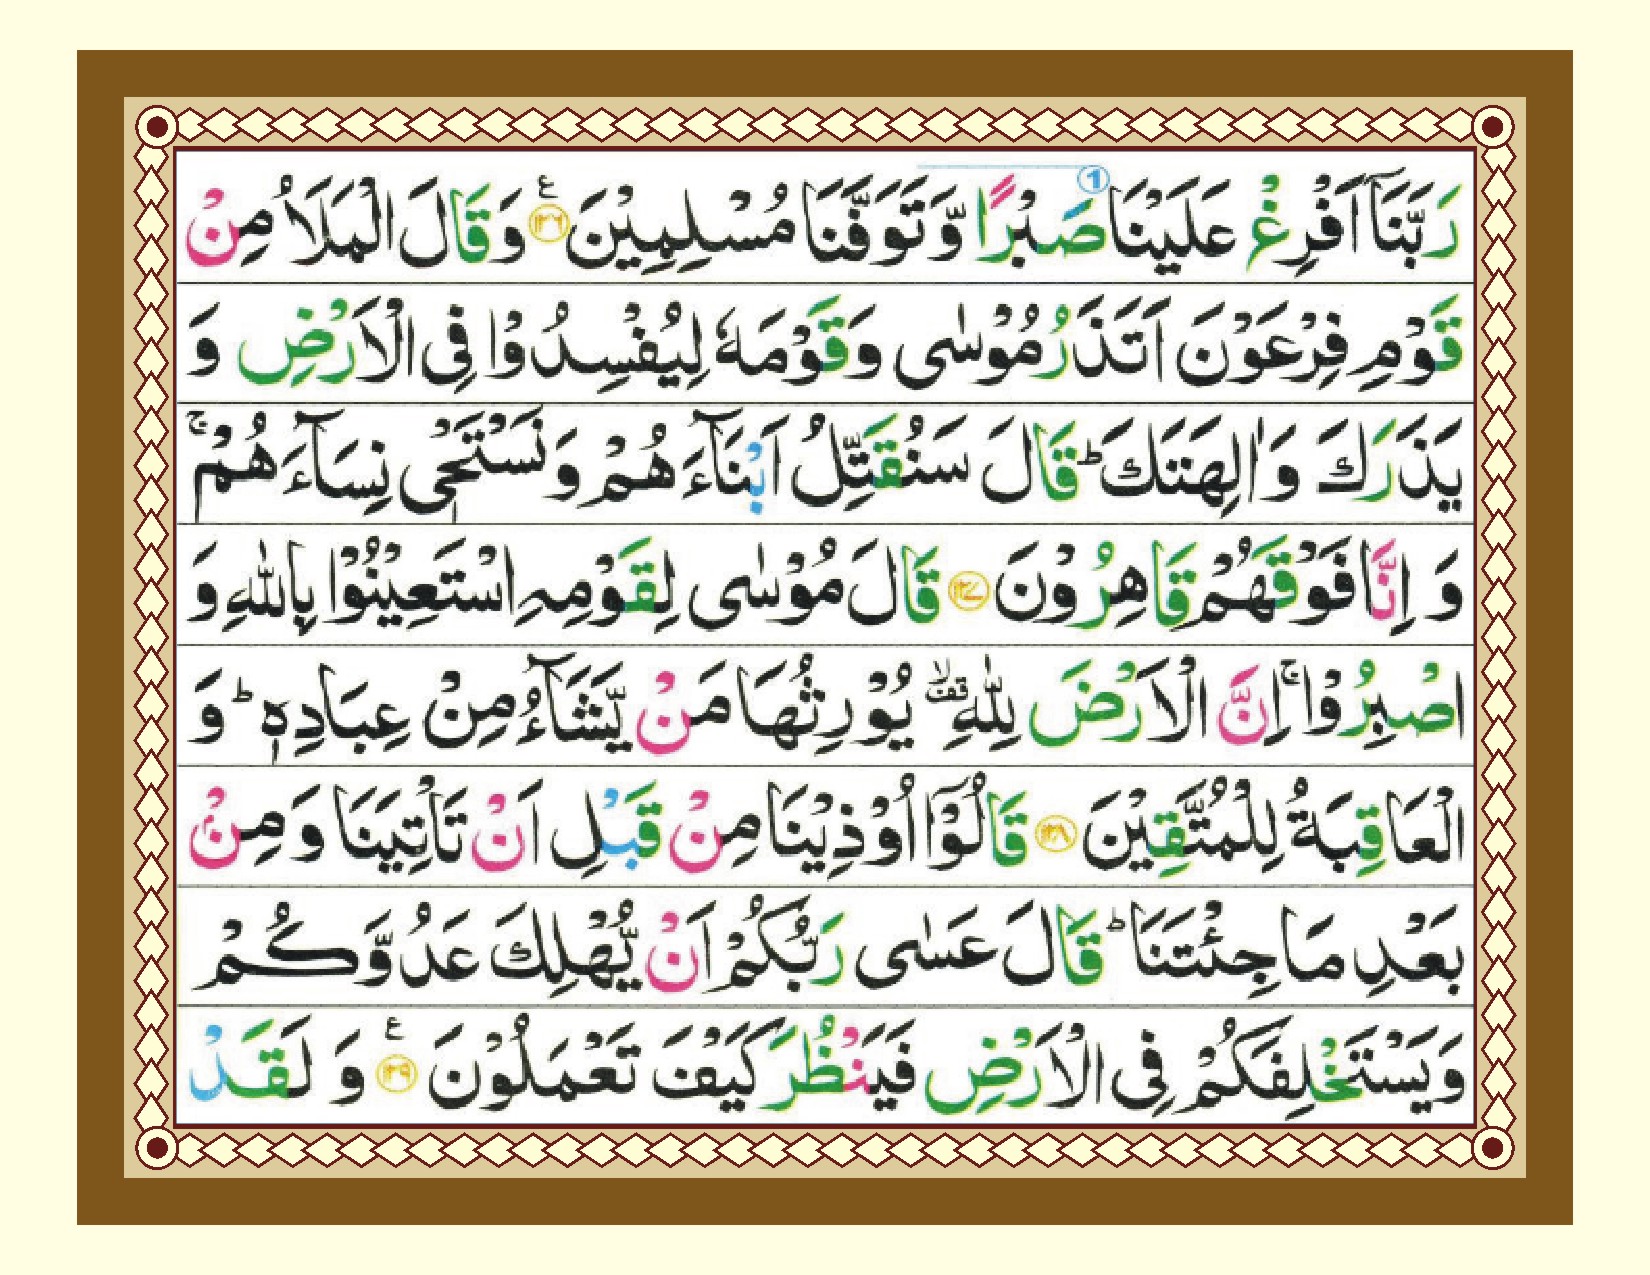 رَبَّنَاۤ اَفۡرِغۡ عَلَیۡنَا صَبۡرًا ① وَّ تَوَفَّنَا مُسۡلِمِیۡنَ ﴿۱۲۶﴾ ع وَ قَالَ الۡمَلَاُ مِنۡ
قَوۡمِ فِرۡعَوۡنَ اَتَذَرُ مُوۡسٰی وَ قَوۡمَهٗ لِیُفۡسِدُوۡا فِی الۡاَرۡضِ وَ
یَذَرَكَ وَ اٰلِهَتَكَ ؕ قَالَ سَنُقَتِّلُ اَبۡنَآءَ هُمۡ وَ نَسۡتَحۡیٖ نِسَآءَ هُمۡ ۚ
وَ اِنَّا فَوۡقَهُمۡ قَاهِرُوۡنَ ﴿۱۲۷﴾ قَالَ مُوۡسٰی لِقَوۡمِهِ اسۡتَعِیۡنُوۡا بِاللّٰهِ وَ
اصۡبِرُوۡا ۚ اِنَّ الۡاَرۡضَ لِلّٰهِ ۟ۙ یُوۡرِثُهَا مَنۡ یَّشَآءُ مِنۡ عِبَادِهٖ ؕ وَ
الۡعَاقِبَةُ لِلۡمُتَّقِیۡنَ ﴿۱۲۸﴾ قَالُوۡۤا اُوۡذِیۡنَا مِنۡ قَبۡلِ اَنۡ تَاۡتِیَنَا وَ مِنۡۢ
بَعۡدِ مَا جِئۡتَنَا ؕ قَالَ عَسٰی رَبُّكُمۡ اَنۡ یُّهۡلِكَ عَدُوَّكُمۡ
وَ یَسۡتَخۡلِفَكُمۡ فِی الۡاَرۡضِ فَیَنۡظُرَ كَیۡفَ تَعۡمَلُوۡنَ ﴿۱۲۹﴾ ع وَ لَقَدۡ